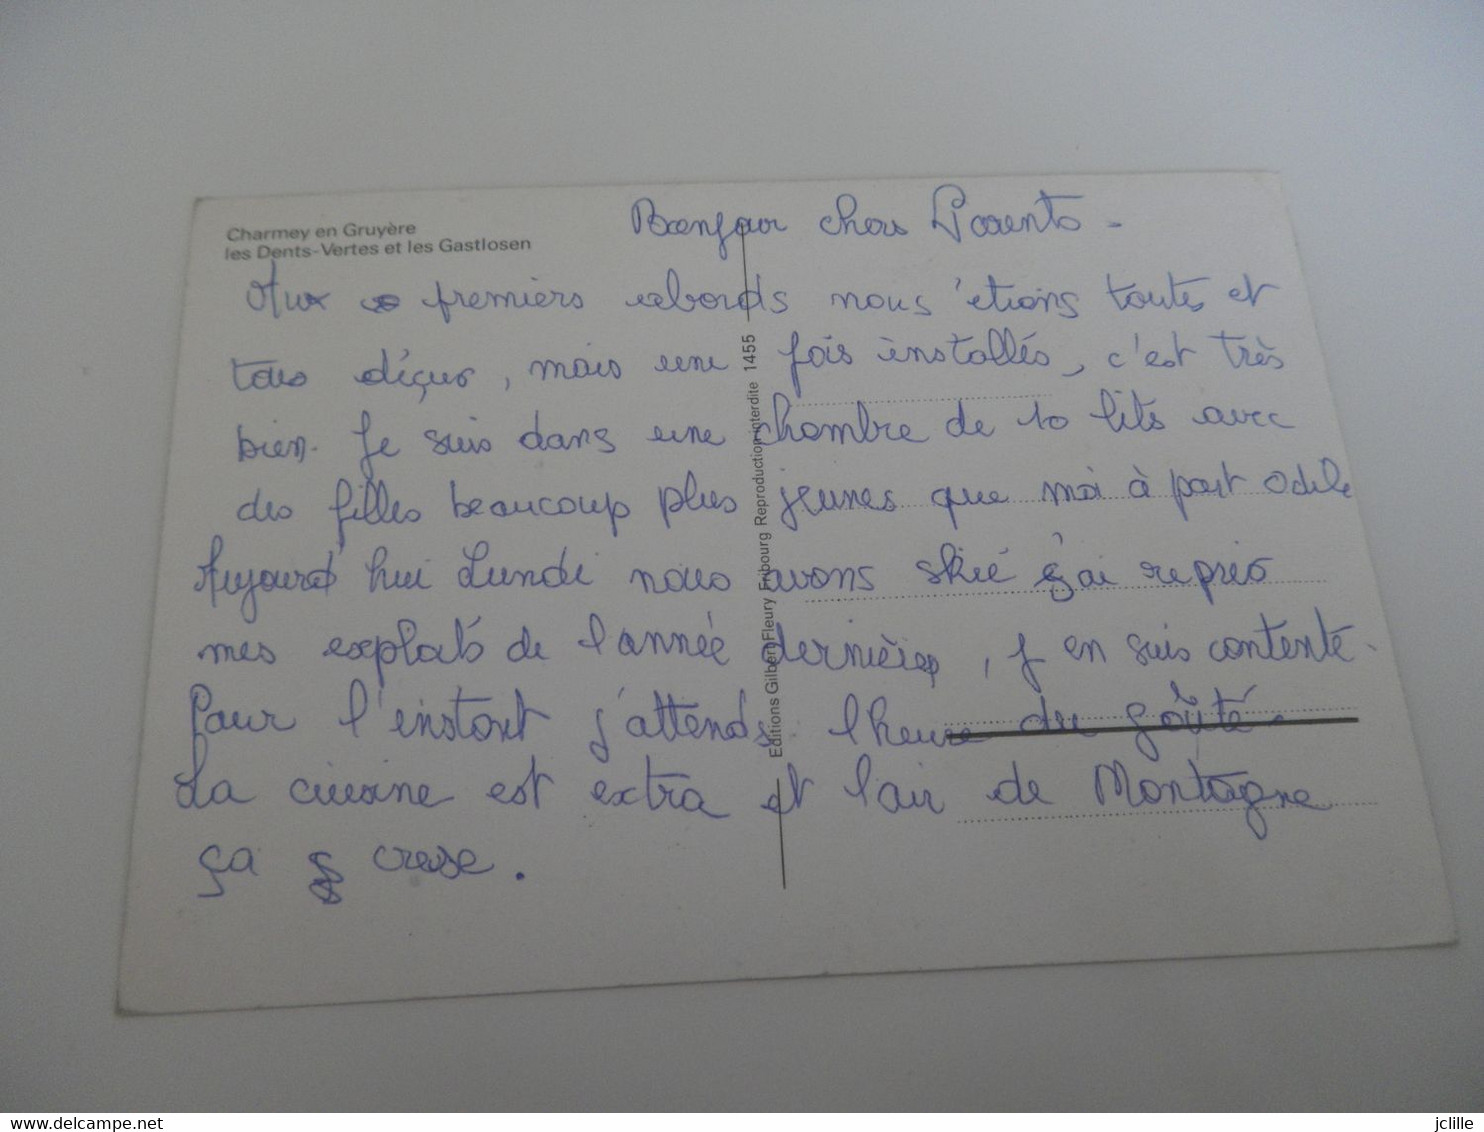 Charmey en Gruyère
les Dents-Vertes et les Gastlosen
Bonjour chers Parents -
Aux premiers abords nous étions toutes et
tous déçus, mais une fois installés, c'est très
bien. Je suis dans une chambre de 10 lits avec
des filles beaucoup plus jeunes que moi à part Odile
Aujourd'hui Lundi nous avons skié j'ai repris
mes exploits de l'année dernière, j en suis contente.
Pour l'instant j'attends l heure du goûté.
La cuisine est extra et l'air de Montagne
ça creuse.
Editions Gilbert Fleury Fribourg Reproduction interdite 1455
jclille